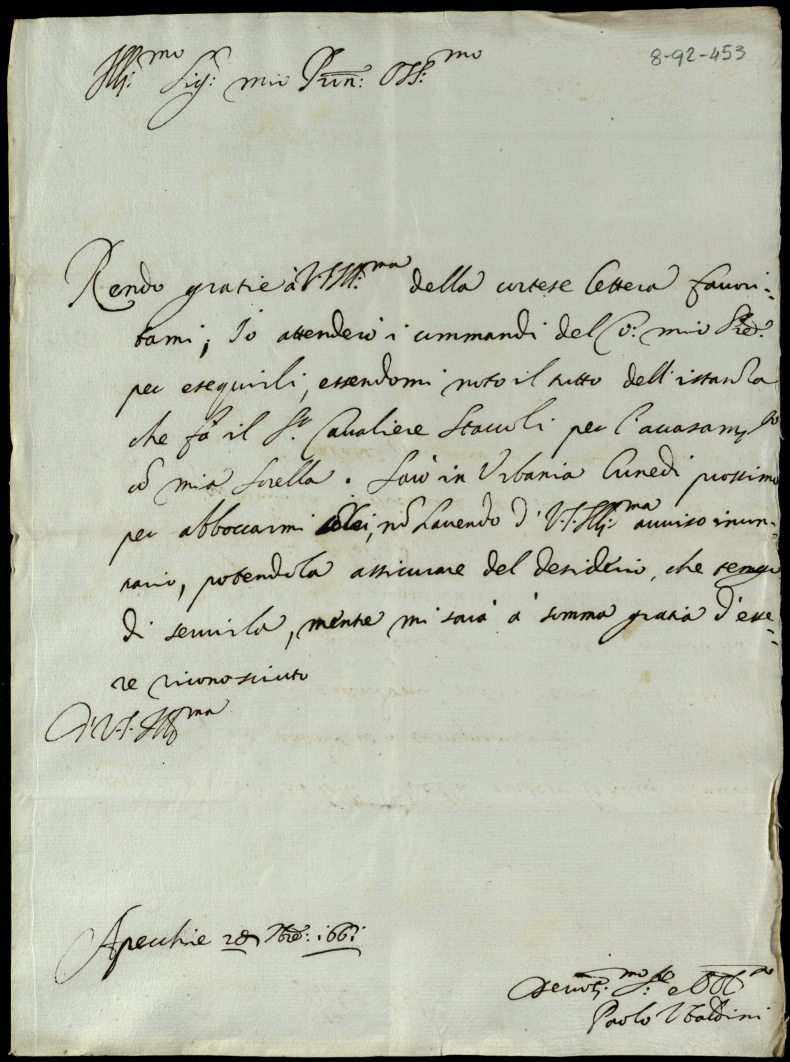 8-92-453
Ill.mo Sig.r mio Pron: Oss.mo
Rendo gratie à V.S. Ill.ma della cortese lettera favori-
tami; Io attenderò i commandi del mio
per eseguirli, essendomi noto il tutto dell'istanza
che fà il S.r Cavaliere Staccoli per l'accasam.to
cō mia sorella. Sarò in Urbania lunedì prossimo
per abboccarmi, nō havendo di V.S. Ill.ma avviso incon-
trario, potendola assicurare del desiderio, che tengo
di servirla, mentre mi sarà à somma gratia d'esse-
re riconosciuto
Di V.S. Ill.ma
Apecchie 28 1661
Devot.mo S.re e Obbl.mo
Paolo Ubaldini